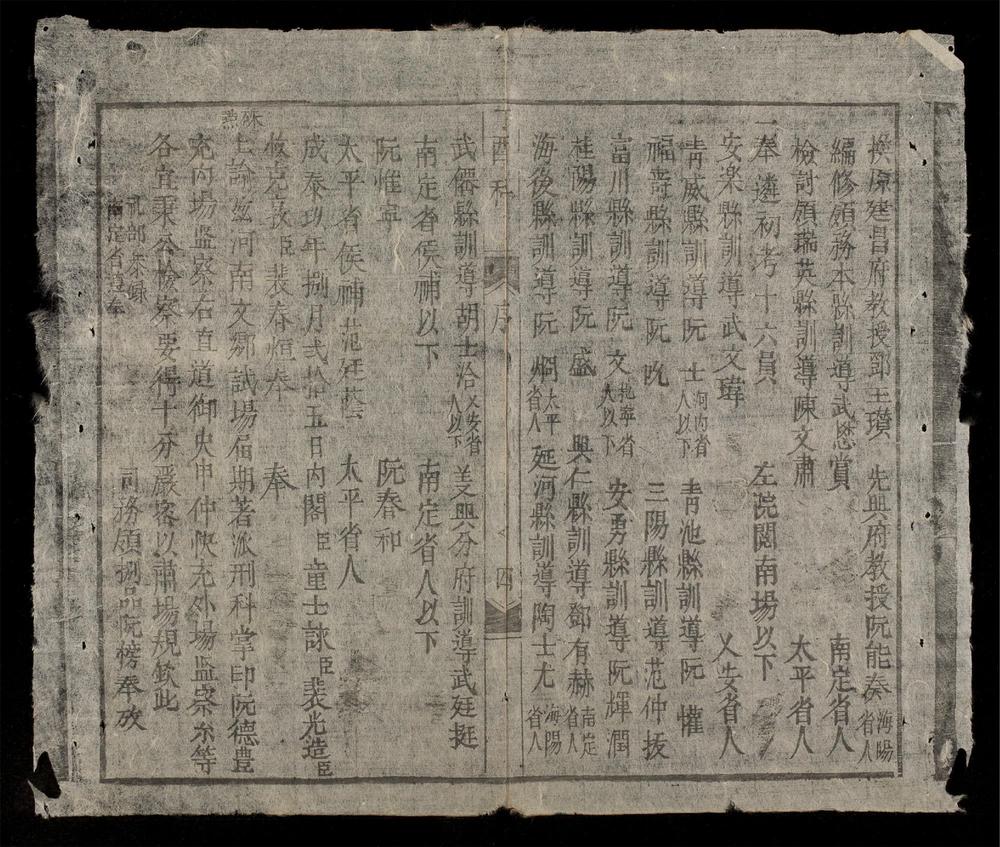 換原建昌府教授鄧玉瓚 先興府教授阮能奏 海陽省人
編修領務本縣訓導武恩賞 南定省人
檢討領瑞英縣訓導陳文肅 太平省人
一奉遴初考十六員 左院閱南場以下
安楽縣訓導武文瑋 乂安省人
青威縣訓導阮士 河內省人以下 青池縣訓導阮懽
福壽縣訓導阮旼 三陽縣訓導范仲拔
富川縣訓導阮文 北寧省人以下 安勇縣訓導阮輝潤
桂陽縣訓導阮盛 興仁縣訓導鄧有赫 南定省人
海後縣訓導阮炯 太平省人 延河縣訓導陶士尤 海陽省人
丁酉科 序 四
武僊縣訓導胡士洽 乂安省人以下 美興分府訓導武廷挺
南定省侯補以下 南定省人以下
阮惟寧 阮春和
太平省侯補范廷蔭 太平省人
成泰玖年捌月弍拾五日內閣臣童士詠臣裴光造臣
裴春烜奉 奉
上諭茲河南文鄉試場屆期著派刑科掌印阮德豊
充內場監察右直道御史申仲㤕充外場監察糸等
各宜秉公檢察要得十分嚴密以肅場規欽此
礼部恭錄
南定省尊奉 司務領捌品阮榜奉放